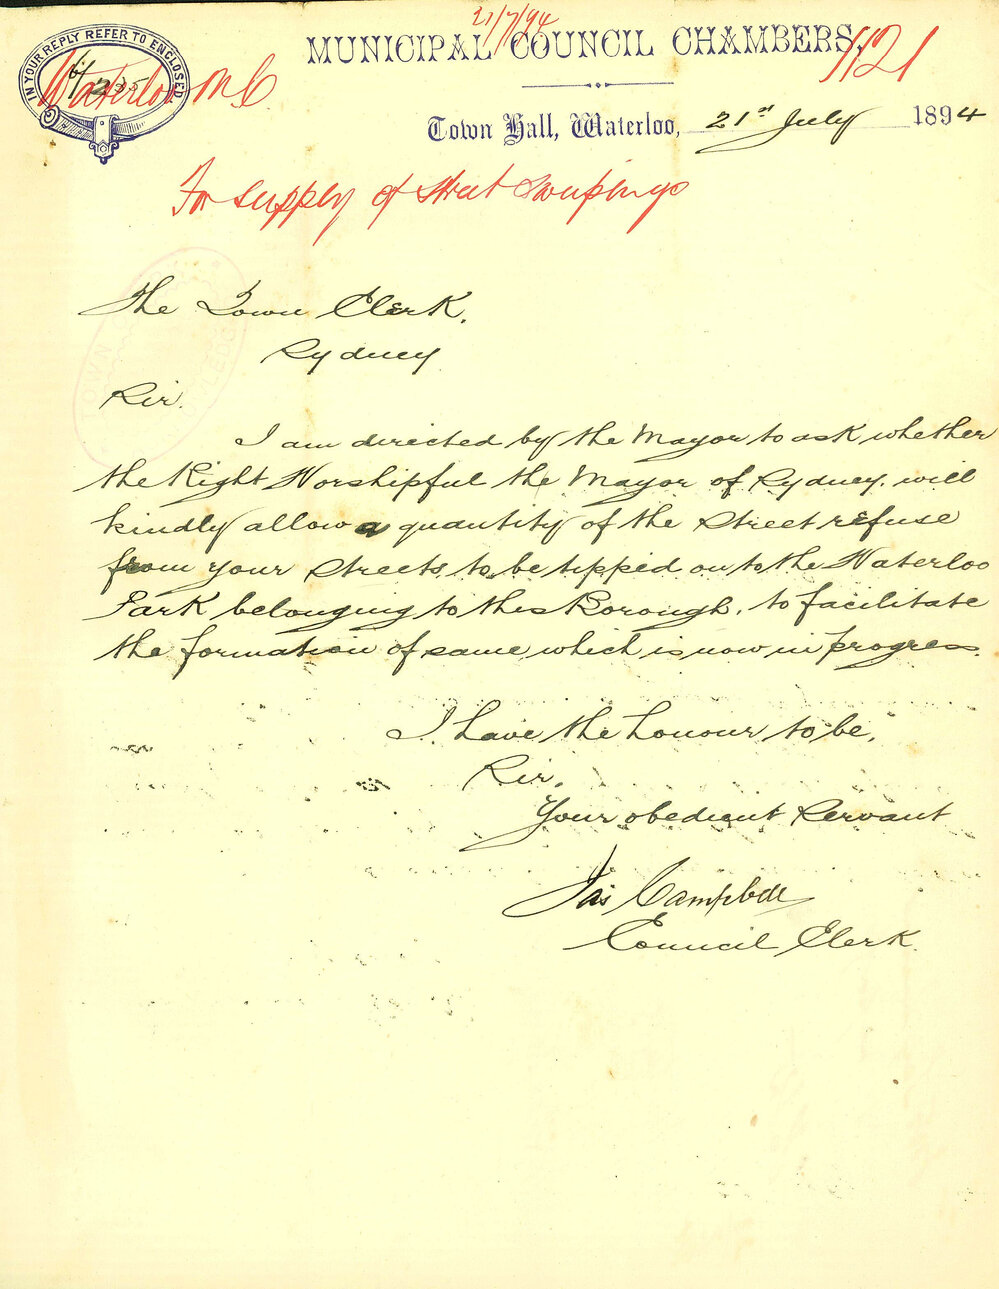 21/7/94
MUNICIPAL COUNCIL CHAMBERS,
1121
IN YOUR REPLY REFER TO ENCLOSED
Waterloo M.C.
Town Hall, Waterloo, 21st July 1894
For supply of Street Sweepings
The Town Clerk,
Sydney
Sir.
I am directed by the Mayor to ask whether
the Right Worshipful the Mayor of Sydney, will
kindly allow a quantity of the street refuse
from your streets, to be tipped on to the Waterloo
Park belonging to this Borough, to facilitate
the formation of same which is now in progress.
I have the honour to be,
Sir,
Your obedient Servant
Jas Campbell
Council Clerk